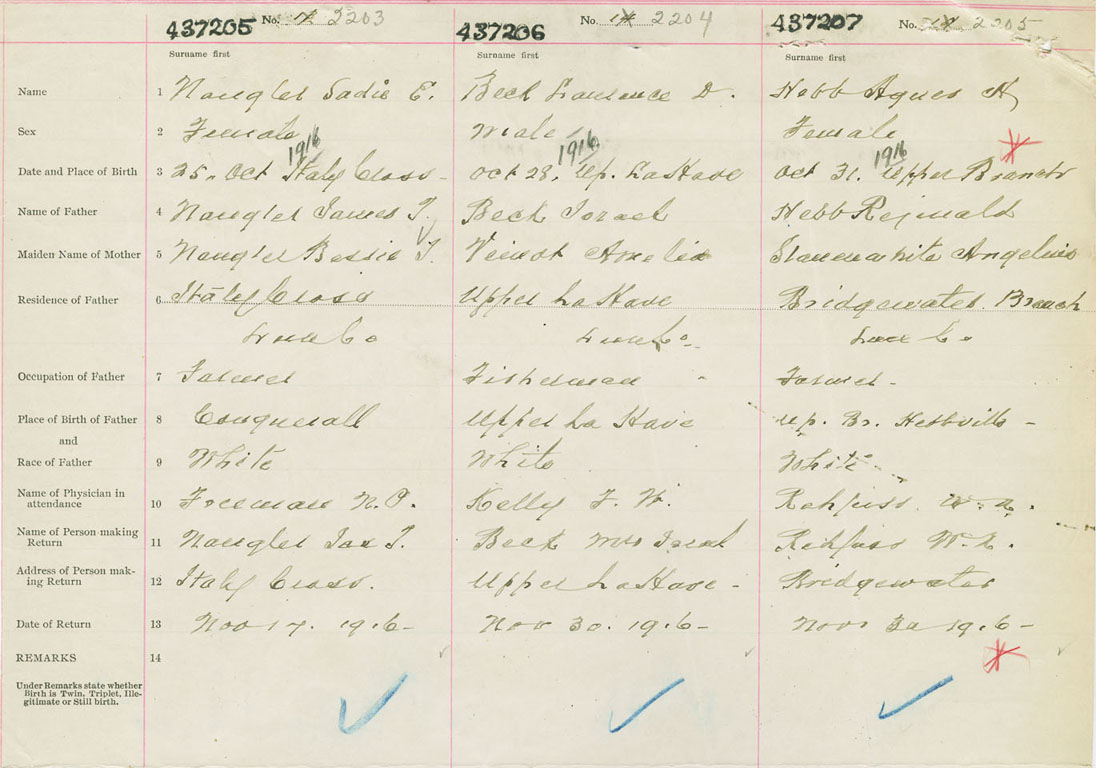 437205 No. 2203 437206 No. 2204 437207 No. 2205
Surname first Surname first Surname first
Name 1 Naugler Sadie E. Beck Laurence D. Hebb Agnes A
Sex 2 Female Male Female
1916 1916 1916
Date and Place of Birth 3 25. Oct Italy Cross Oct 28. Up. LaHave Oct 31. Upper Branch
Name of Father 4 Naugler James T. Beck Israel Hebb Reginald
Maiden Name of Mother 5 Naugler Bessie T. Veinot Amelia Angelina
Residence of Father 6 Italy Cross Upper LaHave Bridgewater Branch
Lun Co Lun Co. Lun Co
Occupation of Father 7 Farmer Fisherman Farmer
Place of Birth of Father 8 Conquerall Upper La Have Up. Br. Hebbville
and
Race of Father 9 White White White
Name of Physician in
attendance 10 Freeman N.P. Kelly F. W. Rehfuss W. N.
Name of Person making
Return 11 Naugler Jas T. Beck Mrs Israel Rehfuss W. N.
Address of Person mak-
ing Return 12 Italy Cross. Upper LaHave - Bridgewater
Date of Return 13 Nov 17. 1916 - Nov 30. 1916 - Nov 30 1916 -
REMARKS 14
Under Remarks state whether
Birth is Twin, Triplet, Ille-
gitimate or Still birth.